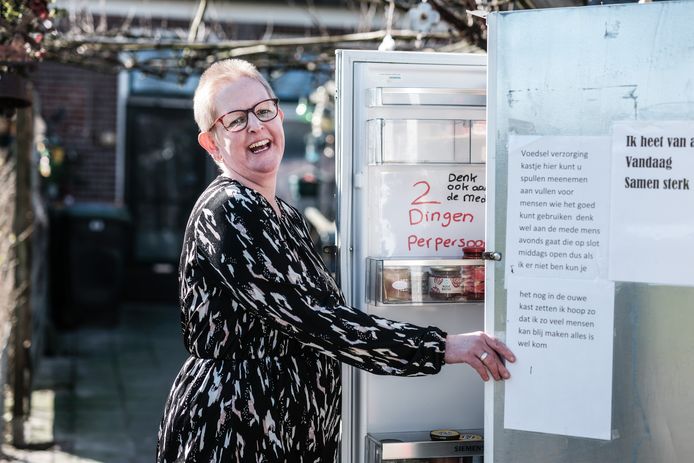 Denk
ook aan
de mede
2
Dingen
per persoon
Voedsel verzorging
kastje hier kunt u
spullen meenemen
aan vullen voor
mensen wie het goed
kunt gebruiken denk
wel aan de mede mens
avonds gaat die op slot
middags open dus als
ik er niet ben kun je
het nog in de ouwe
kast zetten ik hoop zo
dat ik zo veel mensen
kan blij maken alles is
wel kom
Ik heet van a
Vandaag
Samen sterk
SIEMENS